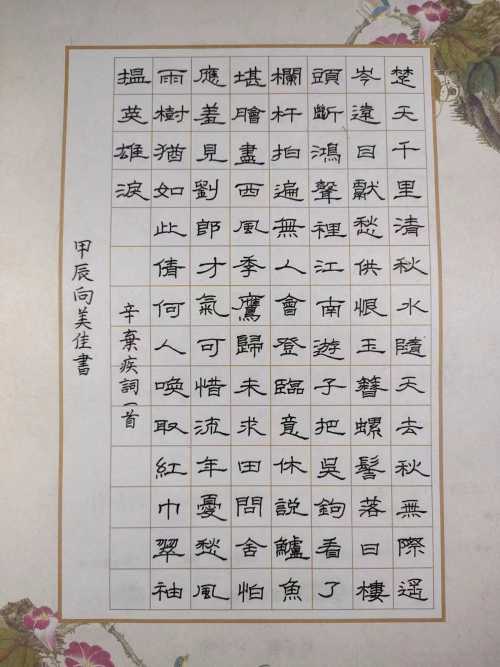 楚天千里清秋水隨天去秋無際遥
岑遠目獻愁供恨玉簪螺髻落日樓
頭斷鴻聲裡江南遊子把吳鉤看了
欄杆拍遍無人會登臨意休說鱸魚
堪膾盡西風季鷹歸未求田問舍怕
應羞見劉郎才氣可惜流年憂愁風
雨樹猶如此倩何人喚取紅巾翠袖
搵英雄淚
辛棄疾詞一首
甲辰向美佳書